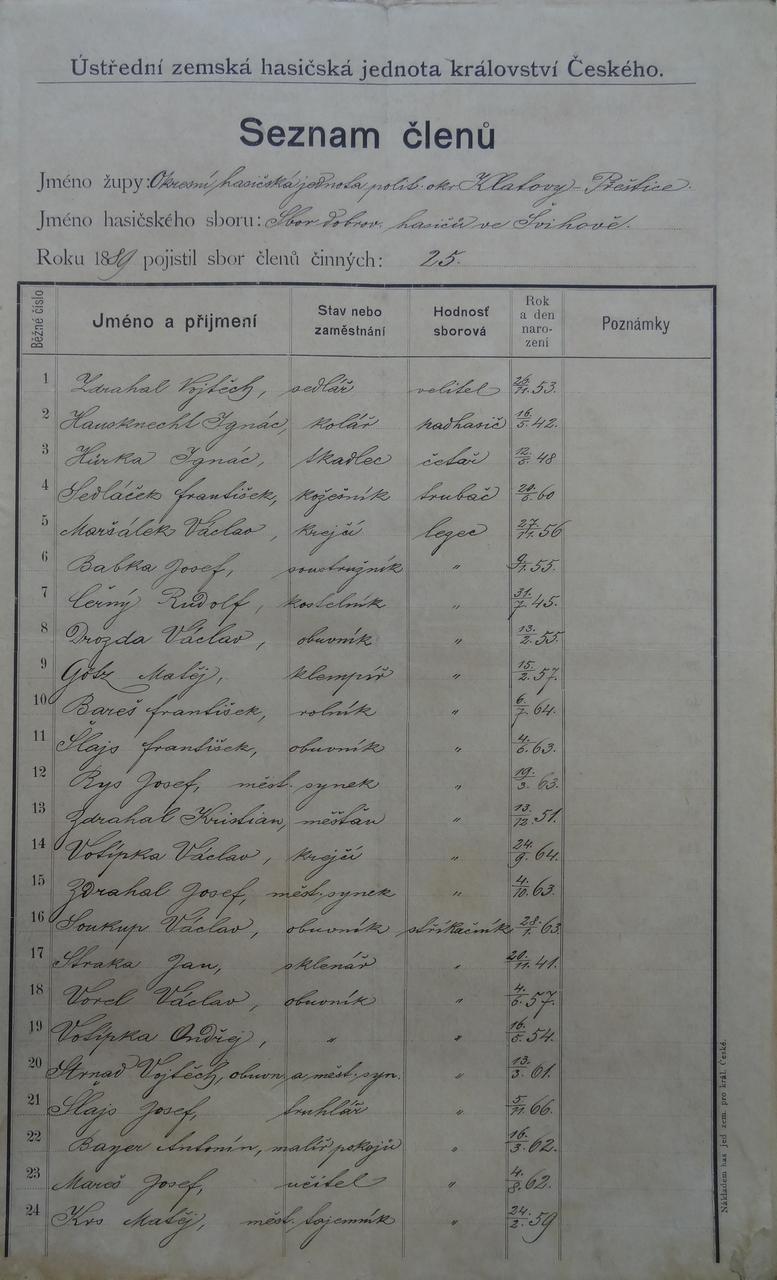 Ústřední zemská hasičská jednota království Českého.
Seznam členů
Jméno župy: Okresní hasičská jednota polit. okr. Klatovy - Přeštice.
Jméno hasičského sboru: Sbor dobrov. hasičů ve Švihově.
Roku 1889 pojistil sbor členů činných: 25.
Běžné číslo Jméno a příjmení Stav nebo zaměstnání Hodnosť sborová Rok a den naro- zení Poznámky
1 Zdrahal Vojtěch, sedlář velitel 26./11. 53.
2 Hausknecht Ignác, kolář nadhasič 16./5. 42.
3 Hůrka Ignác, tkadlec četař 12./5. 48
4 Sedláček František, kožešník trubač 20./5. 60
5 Maršálek Václav, krejčí lezec 27./11. 56
6 Babka Josef, soustružník „ 9./1. 55.
7 Černý Rudolf, kostelník „ 31./7. 45.
8 Drozda Václav, obuvník „ 13./2. 55.
9 Götz Matěj, klempíř „ 15./2. 57.
10 Bareš František, rolník „ 6./7. 64.
11 Šlajs František, obuvník „ 4./6. 63.
12 Rys Josef, měst. synek „ 19./3. 63.
13 Zdrahal Kristian, měšťan „ 13./12. 51.
14 Votípka Václav, krejčí „ 24./9. 64.
15 Zdrahal Josef, měst. synek „ 4./10. 63.
16 Soukup Václav, obuvník stříkačník 28./1. 63.
17 Straka Jan, sklenář „ 20./11. 41.
18 Vorel Václav, obuvník „ 4./6. 57.
19 Votípka Ondřej, „ „ 16./5. 54.
20 Strnad Vojtěch, obuvn. a měst. syn. „ 13./3. 61.
21 Šlajs Josef, truhlář „ 5./11. 66.
22 Bayer Antonín, malíř pokojů „ 16./3. 62.
23 Mareš Josef, učitel „ 4./8. 62.
24 Krs Matěj, měst. tajemník „ 24./2. 59
Nákladem has. jed. zem. pro král. České.